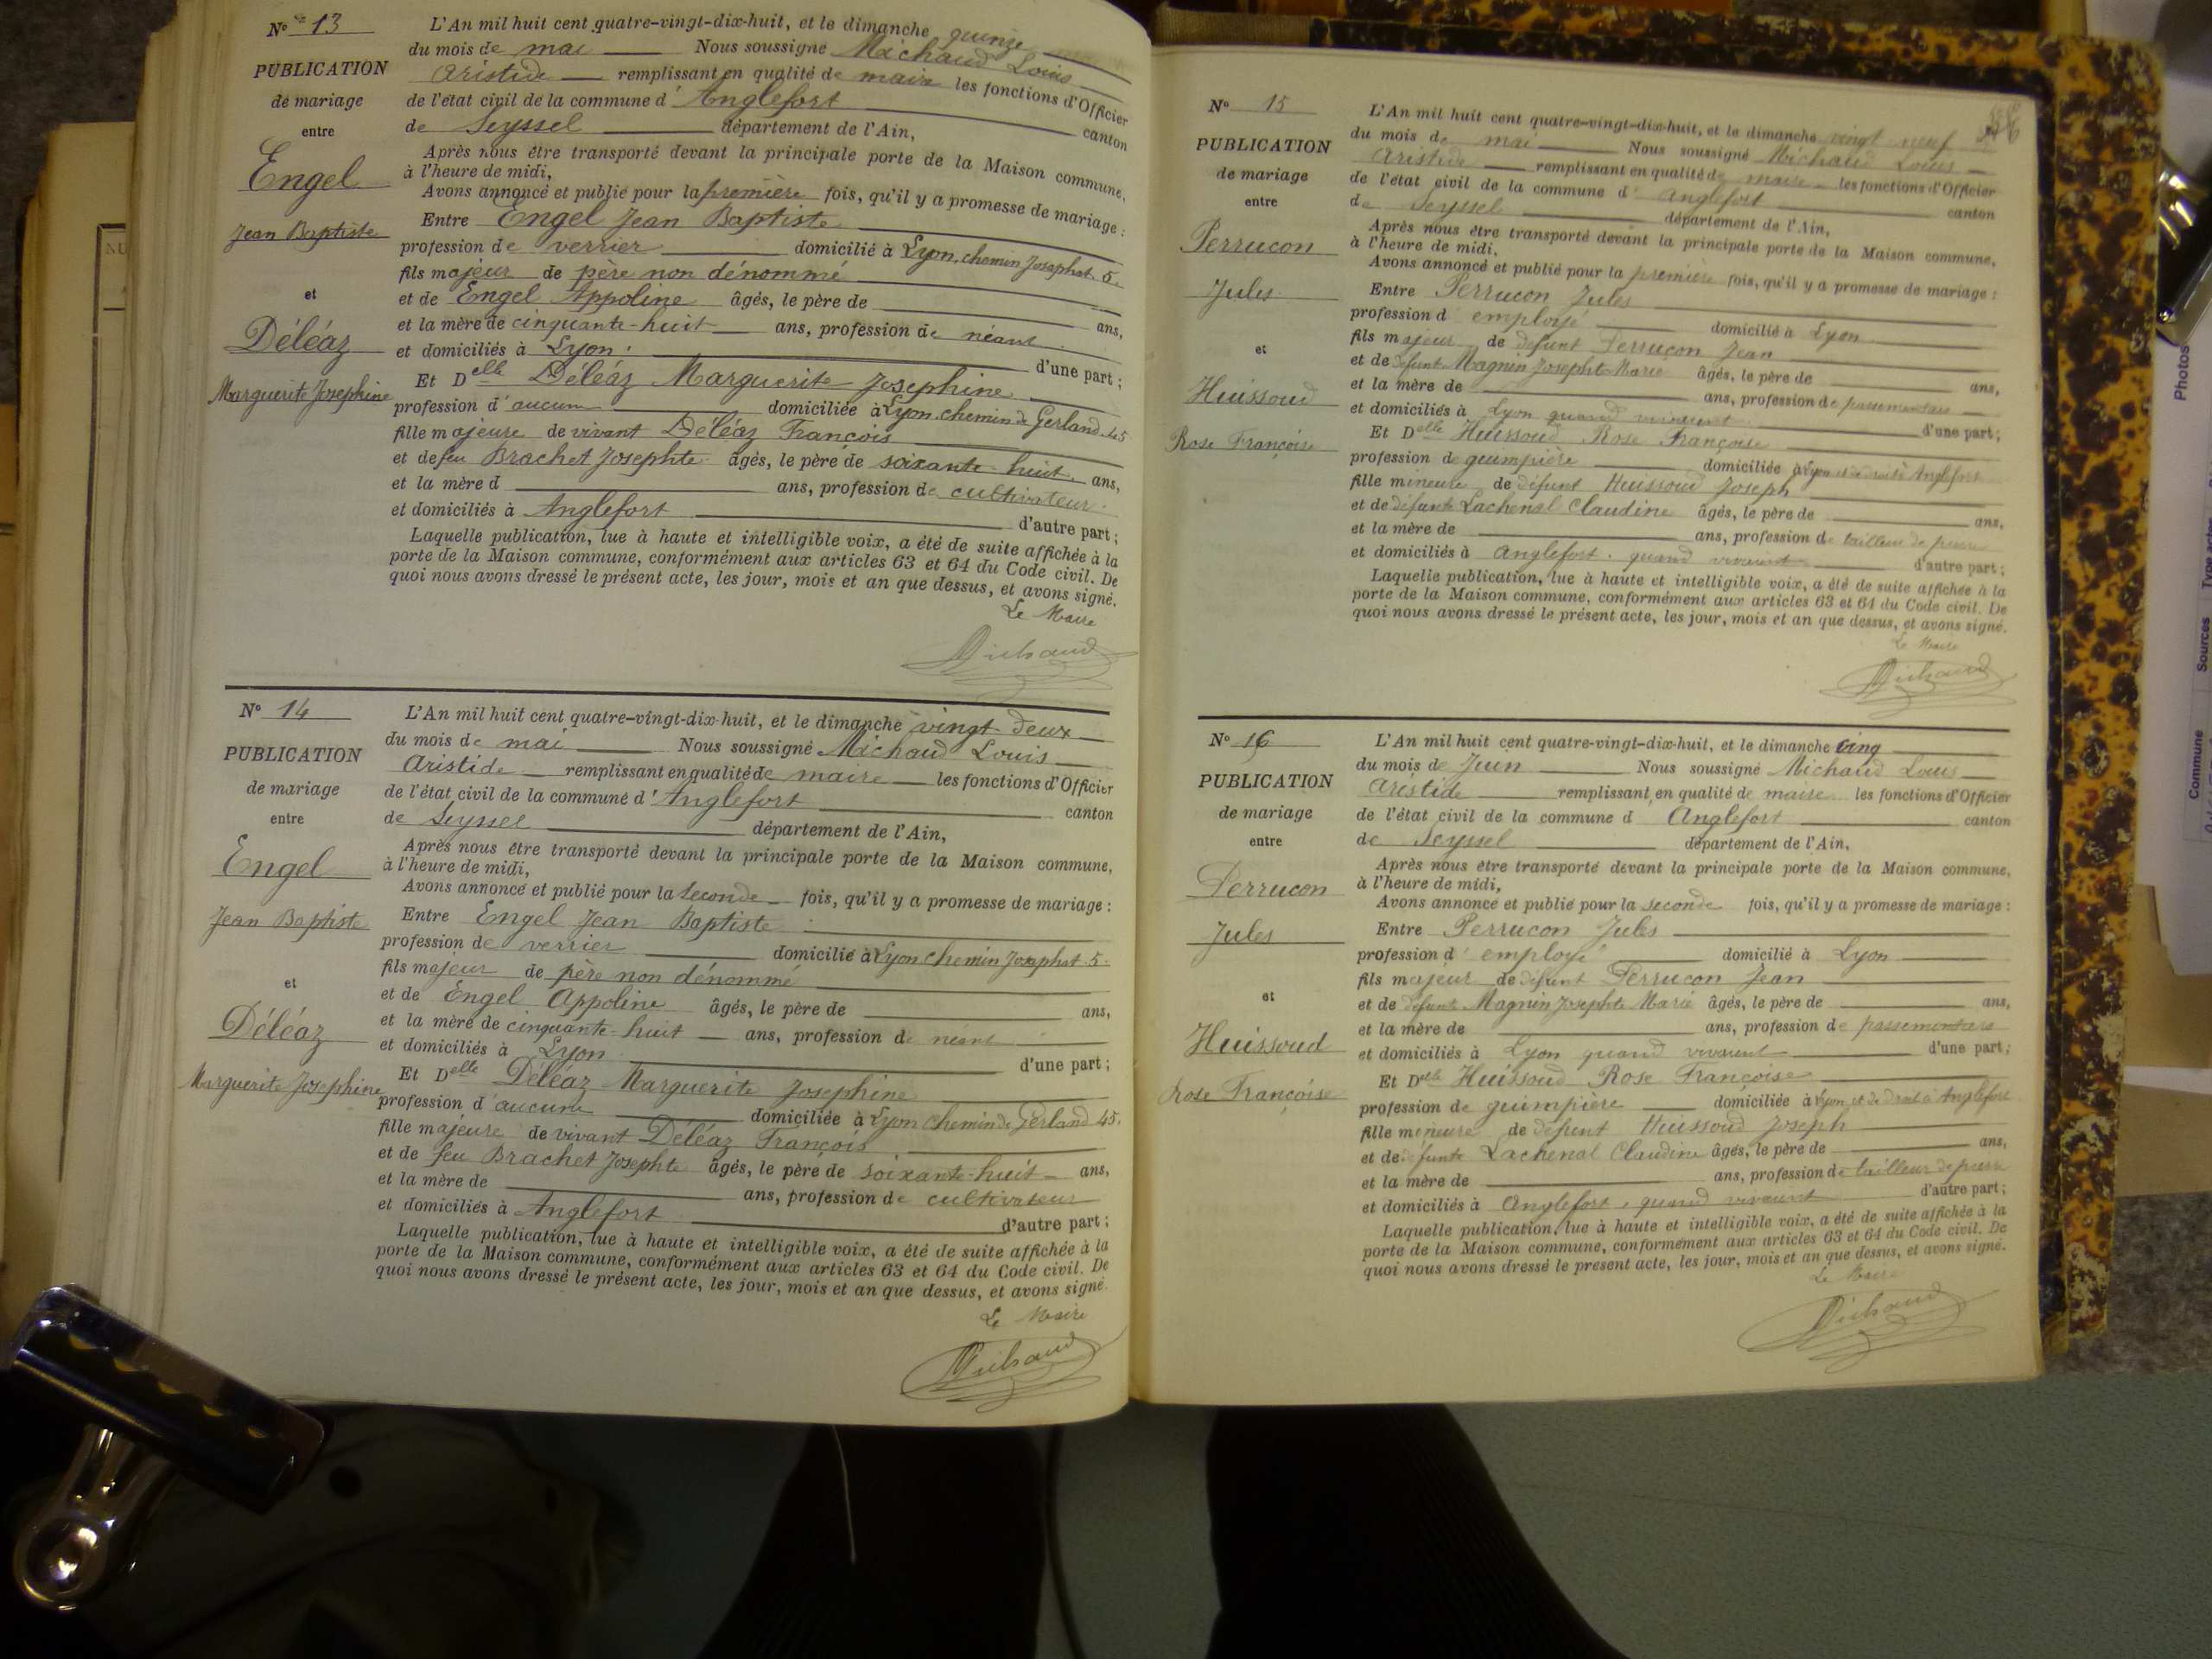 N° 13
PUBLICATION
de mariage
entre
Engel
Jean Baptiste
et
Déléaz
Marguerite Josephine
L'An mil huit cent quatre-vingt-dix-huit, et le dimanche quinze
du mois de mai Nous soussigné Michaud Louis
Aristide remplissant en qualité de maire les fonctions d'Officier
de l'état civil de la commune d'Anglefort canton
de Seyssel département de l'Ain,
Après nous être transporté devant la principale porte de la Maison commune,
à l'heure de midi,
Avons annoncé et publié pour la première fois, qu'il y a promesse de mariage :
Entre Engel Jean Baptiste
profession de verrier domicilié à Lyon, chemin Josaphat. 5.
fils majeur de père non dénommé
et de Engel Appoline âgés, le père de ans,
et la mère de cinquante-huit ans, profession de néant
et domiciliés à Lyon. d'une part ;
Et Delle Déléaz Marguerite Josephine
profession d'aucune domiciliée à Lyon chemin de Gerland 45
fille majeure de vivant Déléaz François
et de feu Brachet Josephte âgés, le père de soixante-huit ans,
et la mère d ans, profession de cultivateur
et domiciliés à Anglefort d'autre part ;
Laquelle publication, lue à haute et intelligible voix, a été de suite affichée à la
porte de la Maison commune, conformément aux articles 63 et 64 du Code civil. De
quoi nous avons dressé le présent acte, les jour, mois et an que dessus, et avons signé.
Le Maire
Michaud
N° 14
PUBLICATION
de mariage
entre
Engel
Jean Baptiste
et
Déléaz
Marguerite Josephine
L'An mil huit cent quatre-vingt-dix-huit, et le dimanche vingt-deux
du mois de mai Nous soussigné Michaud Louis
Aristide remplissant en qualité de maire les fonctions d'Officier
de l'état civil de la commune d'Anglefort canton
de Seyssel département de l'Ain,
Après nous être transporté devant la principale porte de la Maison commune,
à l'heure de midi,
Avons annoncé et publié pour la seconde fois, qu'il y a promesse de mariage :
Entre Engel Jean Baptiste
profession de verrier domicilié à Lyon chemin Josaphat 5.
fils majeur de père non dénommé
et de Engel Appoline âgés, le père de ans,
et la mère de cinquante-huit ans, profession de néant
et domiciliés à Lyon d'une part ;
Et Delle Déléaz Marguerite Josephine
profession d'aucune domiciliée à Lyon chemin de Gerland 45.
fille majeure de vivant Déléaz François
et de feu Brachet Josephte âgés, le père de soixante-huit ans,
et la mère de ans, profession de cultivateur
et domiciliés à Anglefort d'autre part ;
Laquelle publication, lue à haute et intelligible voix, a été de suite affichée à la
porte de la Maison commune, conformément aux articles 63 et 64 du Code civil. De
quoi nous avons dressé le présent acte, les jour, mois et an que dessus, et avons signé.
Le Maire
Michaud
N° 15
PUBLICATION
de mariage
entre
Perrucon
Jules
et
Huissoud
Rose Françoise
L'An mil huit cent quatre-vingt-dix-huit, et le dimanche vingt neuf
du mois de mai Nous soussigné Michaud Louis
Aristide remplissant en qualité de maire les fonctions d'Officier
de l'état civil de la commune d'Anglefort canton
de Seyssel département de l'Ain,
Après nous être transporté devant la principale porte de la Maison commune,
à l'heure de midi,
Avons annoncé et publié pour la première fois, qu'il y a promesse de mariage :
Entre Perrucon Jules
profession d'employé domicilié à Lyon
fils majeur de défunt Perrucon Jean
et de défunte Magnin Josephte Marie âgés, le père de ans,
et la mère de ans, profession de passementiers
et domiciliés à Lyon quand vivaient d'une part ;
Et Delle Huissoud Rose Françoise
profession de guimpière domiciliée à Lyon et de droit à Anglefort
fille mineure de défunt Huissoud Joseph
et de défunte Lachenal Claudine âgés, le père de ans,
et la mère de ans, profession de tailleur de pierre
et domiciliés à Anglefort. quand vivaient d'autre part ;
Laquelle publication, lue à haute et intelligible voix, a été de suite affichée à la
porte de la Maison commune, conformément aux articles 63 et 64 du Code civil. De
quoi nous avons dressé le présent acte, les jour, mois et an que dessus, et avons signé.
Le Maire
Michaud
N° 16
PUBLICATION
de mariage
entre
Perrucon
Jules
et
Huissoud
Rose Françoise
L'An mil huit cent quatre-vingt-dix-huit, et le dimanche cinq
du mois de Juin Nous soussigné Michaud Louis
Aristide remplissant en qualité de maire les fonctions d'Officier
de l'état civil de la commune d Anglefort canton
de Seyssel département de l'Ain,
Après nous être transporté devant la principale porte de la Maison commune,
à l'heure de midi,
Avons annoncé et publié pour la seconde fois, qu'il y a promesse de mariage :
Entre Perrucon Jules
profession d'employé domicilié à Lyon
fils majeur de défunt Perrucon Jean
et de défunte Magnin Josephte Marie âgés, le père de ans,
et la mère de ans, profession de passementiers
et domiciliés à Lyon quand vivaient d'une part ;
Et Delle Huissoud Rose Françoise
profession de guimpière domiciliée à Lyon et de droit à Anglefort
fille mineure de défunt Huissoud Joseph
et de défunte Lachenal Claudine âgés, le père de ans,
et la mère de ans, profession de tailleur de pierre
et domiciliés à Anglefort, quand vivaient d'autre part ;
Laquelle publication, lue à haute et intelligible voix, a été de suite affichée à la
porte de la Maison commune, conformément aux articles 63 et 64 du Code civil. De
quoi nous avons dressé le présent acte, les jour, mois et an que dessus, et avons signé.
Le Maire
Michaud
Photos
Sources
Commune